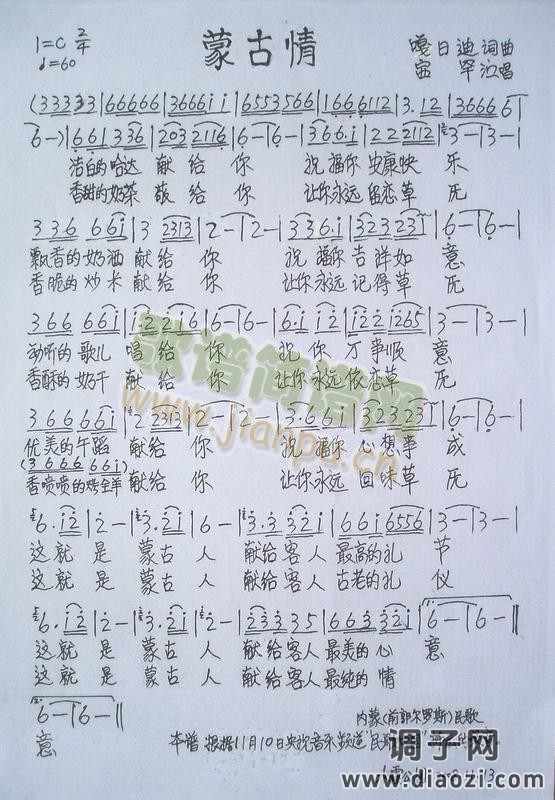 蒙古情
1=C 2/4
♩=60
嘎日迪 词曲
演唱
(33333|66666|3666i i|6553566|1666112|3.12|3666 6|
6-)|661336|2032116|6-|6-|366.i|222112|3-|3-|
洁白的哈达 献给 你 祝福你 安康快 乐
香甜的奶茶 献给 你 让你永远 留恋草 原
336 66i|3 2313|2-|2-|336.i|323231|6-|6-|
飘香的奶酒 献给 你 祝福你 吉祥如 意
香脆的炒米 献给 你 让你永远 记得草 原
366 66i|i.22i6|6-|6-|6.i i2|i22i265|3-|3-|
动听的歌儿 唱给 你 祝你 万事顺 意
香酥的奶干 献给 你 让你永远 依恋草 原
366 66i|2 2313|2-|2-|3.66i|323231|6-|6-|
优美的午蹈 献给 你 祝福你 心想事 成
(3666 66i)
香喷喷的烤全羊 献给 你 让你永远 回味草 原
6.i2|2-|3.2i|6-|3.3 32i|66i6556|3-|3-|
这就 是 蒙古 人 献给客人 最高的礼 节
这就 是 蒙古 人 献给客人 古老的礼 仪
6.i2|2-|3.2i|2-|23335|66.332i|6-|6-‖
这就 是 蒙古 人 献给客人 最美的心 意
这就 是 蒙古 人 献给客人 最纯的 情
6-|6-‖
意
内蒙(前郭尔罗斯)民歌
本谱 根据11月10日央视音乐频道"民
歌谱简谱网
www.jianpu.cn
调子网
www.diaozi.com